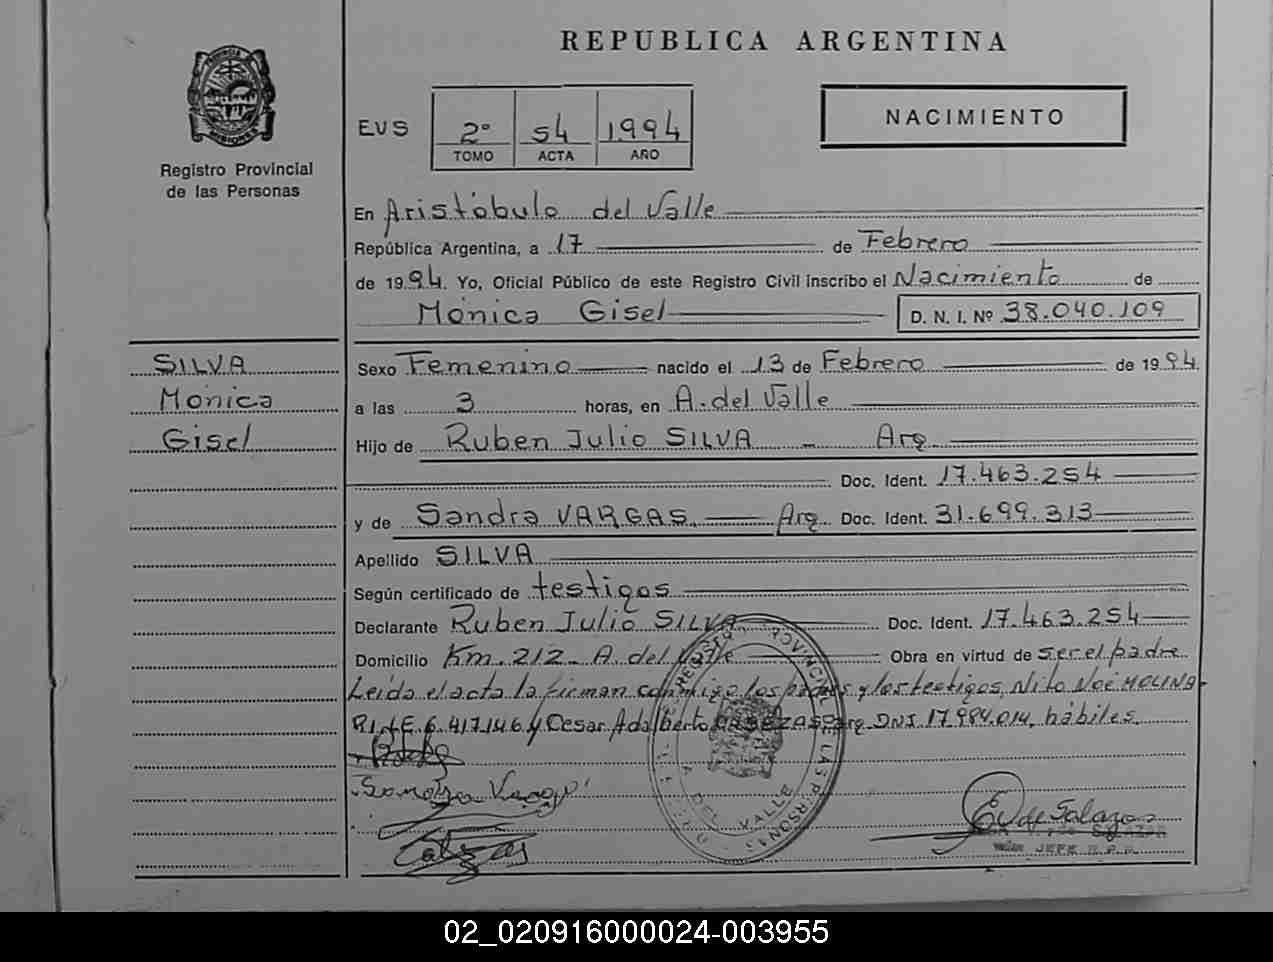 REPUBLICA ARGENTINA
PROVINCIA
MISIONES
Registro Provincial
de las Personas
EVS
2° 54 1994
TOMO ACTA AÑO
NACIMIENTO
En Aristóbulo del Valle
República Argentina, a 17 de Febrero
de 1994. Yo, Oficial Público de este Registro Civil inscribo el Nacimiento de
Mónica Gisel D. N. I. Nº 38.040.109
SILVA
Mónica
Gisel
Sexo Femenino nacido el 13 de Febrero de 1994.
a las 3 horas, en A. del Valle
Hijo de Ruben Julio SILVA - Arg.
Doc. Ident. 17.463.254
y de Sandra VARGAS. Arg. Doc. Ident. 31.699.313
Apellido SILVA
Según certificado de testigos
Declarante Ruben Julio SILVA Doc. Ident. 17.463.254
Domicilio Km. 212 - A del Valle Obra en virtud de ser el padre
Leída el acta la firman conmigo los padres y los testigos, Nito Noé MOLINA
6.417.146 y Cesar Adalberto Arg. DNI 17.984.014, hábiles.
Sandra Vargas
E V de Salazar
SALAZAR
JEFE R.P.P.
REGISTRO PROVINCIAL DE LAS PERSONAS
A. DEL VALLE
02_020916000024-003955